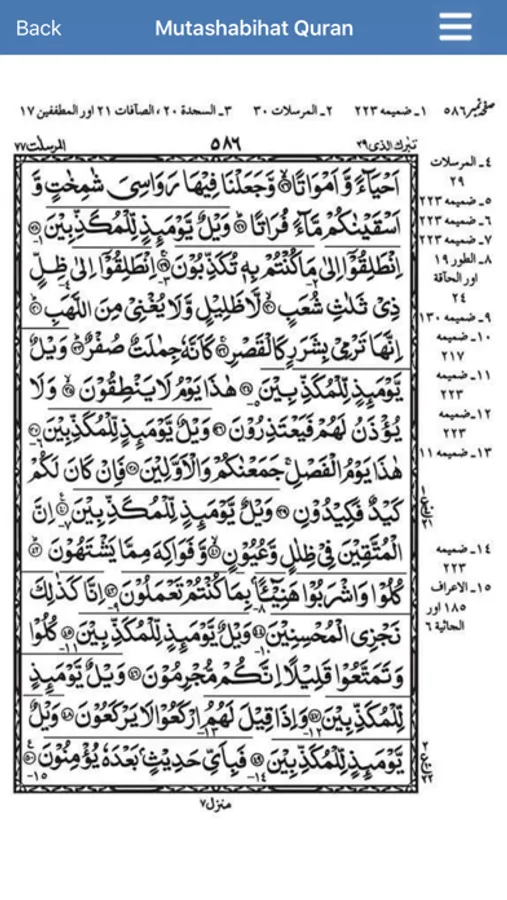 Back
Mutashabihat Quran
صفحہ نمبر ۵۸۶ ۱۔ ضمیمہ ۲۲۳ ۲۔ المرسلات ۳۰ ۳۔ السجدة ۲۰ ، الصآفات ۲۱ اور المطففین ۱۷
تبٰرك الذی ۲۹ ۵۸۶ المرسلٰت ۷۷
اَحْيَآءً وَّ اَمْوَاتًا ﴿۲۶﴾ وَّ جَعَلْنَا فِيْهَا رَوَاسِيَ شٰمِخٰتٍ وَّ
اَسْقَيْنٰكُمْ مَّآءً فُرَاتًا ﴿۲۷﴾ وَيْلٌ يَّوْمَىِٕذٍ لِّلْمُكَذِّبِيْنَ ﴿۲۸﴾
اِنْطَلِقُوْۤا اِلٰى مَا كُنْتُمْ بِهٖ تُكَذِّبُوْنَ ﴿۲۹﴾ اِنْطَلِقُوْۤا اِلٰى ظِلٍّ
ذِيْ ثَلٰثِ شُعَبٍ ﴿۳۰﴾ لَّا ظَلِيْلٍ وَّ لَا يُغْنِيْ مِنَ اللَّهَبِ ﴿۳۱﴾
اِنَّهَا تَرْمِيْ بِشَرَرٍ كَالْقَصْرِ ﴿۳۲﴾ كَاَنَّهٗ جِمٰلَتٌ صُفْرٌ ﴿۳۳﴾ وَيْلٌ
يَّوْمَىِٕذٍ لِّلْمُكَذِّبِيْنَ ﴿۳۴﴾ هٰذَا يَوْمُ لَا يَنْطِقُوْنَ ﴿۳۵﴾ وَ لَا
يُؤْذَنُ لَهُمْ فَيَعْتَذِرُوْنَ ﴿۳۶﴾ وَيْلٌ يَّوْمَىِٕذٍ لِّلْمُكَذِّبِيْنَ ﴿۳۷﴾
هٰذَا يَوْمُ الْفَصْلِ ۚ جَمَعْنٰكُمْ وَ الْاَوَّلِيْنَ ﴿۳۸﴾ فَاِنْ كَانَ لَكُمْ
كَيْدٌ فَكِيْدُوْنِ ﴿۳۹﴾ وَيْلٌ يَّوْمَىِٕذٍ لِّلْمُكَذِّبِيْنَ ﴿۴۰﴾ اِنَّ
الْمُتَّقِيْنَ فِيْ ظِلٰلٍ وَّ عُيُوْنٍ ﴿۴۱﴾ وَّ فَوَاكِهَ مِمَّا يَشْتَهُوْنَ ﴿۴۲﴾
كُلُوْا وَ اشْرَبُوْا هَنِيْٓـًٔۢا بِمَا كُنْتُمْ تَعْمَلُوْنَ ﴿۴۳﴾ اِنَّا كَذٰلِكَ
نَجْزِي الْمُحْسِنِيْنَ ﴿۴۴﴾ وَيْلٌ يَّوْمَىِٕذٍ لِّلْمُكَذِّبِيْنَ ﴿۴۵﴾ كُلُوْا
وَ تَمَتَّعُوْا قَلِيْلًا اِنَّكُمْ مُّجْرِمُوْنَ ﴿۴۶﴾ وَيْلٌ يَّوْمَىِٕذٍ
لِّلْمُكَذِّبِيْنَ ﴿۴۷﴾ وَ اِذَا قِيْلَ لَهُمُ ارْكَعُوْا لَا يَرْكَعُوْنَ ﴿۴۸﴾ وَيْلٌ
يَّوْمَىِٕذٍ لِّلْمُكَذِّبِيْنَ ﴿۴۹﴾ فَبِاَيِّ حَدِيْثٍۭ بَعْدَهٗ يُؤْمِنُوْنَ ﴿۵۰﴾
منزل ۷
۴۔ المرسلات
۲۹
۵۔ ضمیمہ ۲۲۳
۶۔ ضمیمہ ۲۲۳
۷۔ ضمیمہ ۲۲۳
۸۔ الطور ۱۹
اور الحآقة
۲۴
۹۔ ضمیمہ ۱۳۰
۱۰۔ ضمیمہ
۲۱۷
۱۱۔ ضمیمہ
۲۲۳
۱۲۔ ضمیمہ
۲۲۳
۱۳۔ ضمیمہ ۱۱
۱۴۔ ضمیمہ
۲۲۳
۱۵۔ الاعراف
۱۸۵ اور
الجاثیة ۶